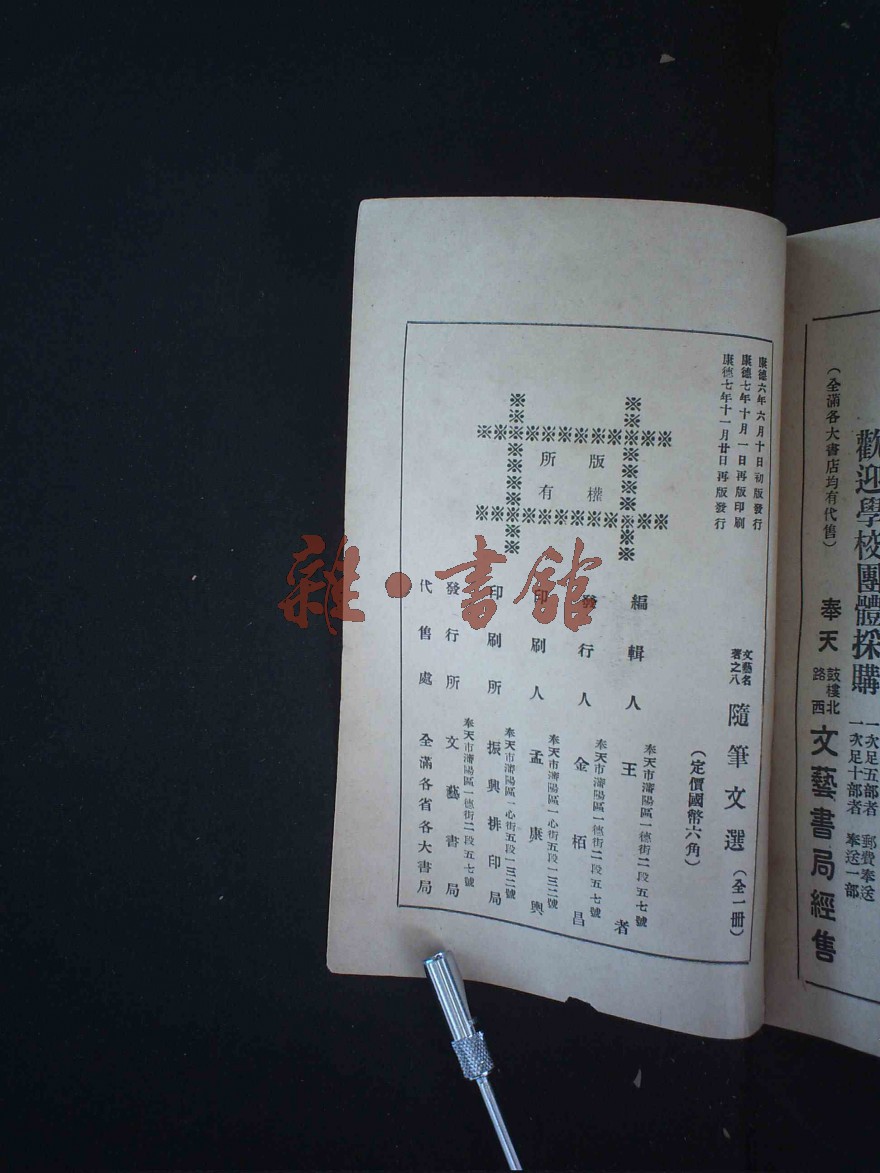 歡迎學校團體採購
一次足五部者 郵費奉送
一次足十部者 奉送一部
(全滿各大書店均有代售)
奉天 鼓樓北路西 文藝書局經售
康德六年六月十日初版發行
康德七年十月一日再版印刷
康德七年十一月廿日再版發行
文藝名著之八 隨筆文選 (全一冊)
(定價國幣六角)
版權
所有
奉天市瀋陽區一德街二段五七號
編輯人 王者
奉天市瀋陽區一德街二段五七號
發行人 金栢昌
奉天市瀋陽區一心街五段一三二號
印刷人 孟慶興
奉天市瀋陽區一心街五段一三二號
印刷所 振興排印局
奉天市瀋陽區一德街二段五七號
發行所 文藝書局
代售處 全滿各省各大書局
雜·書館